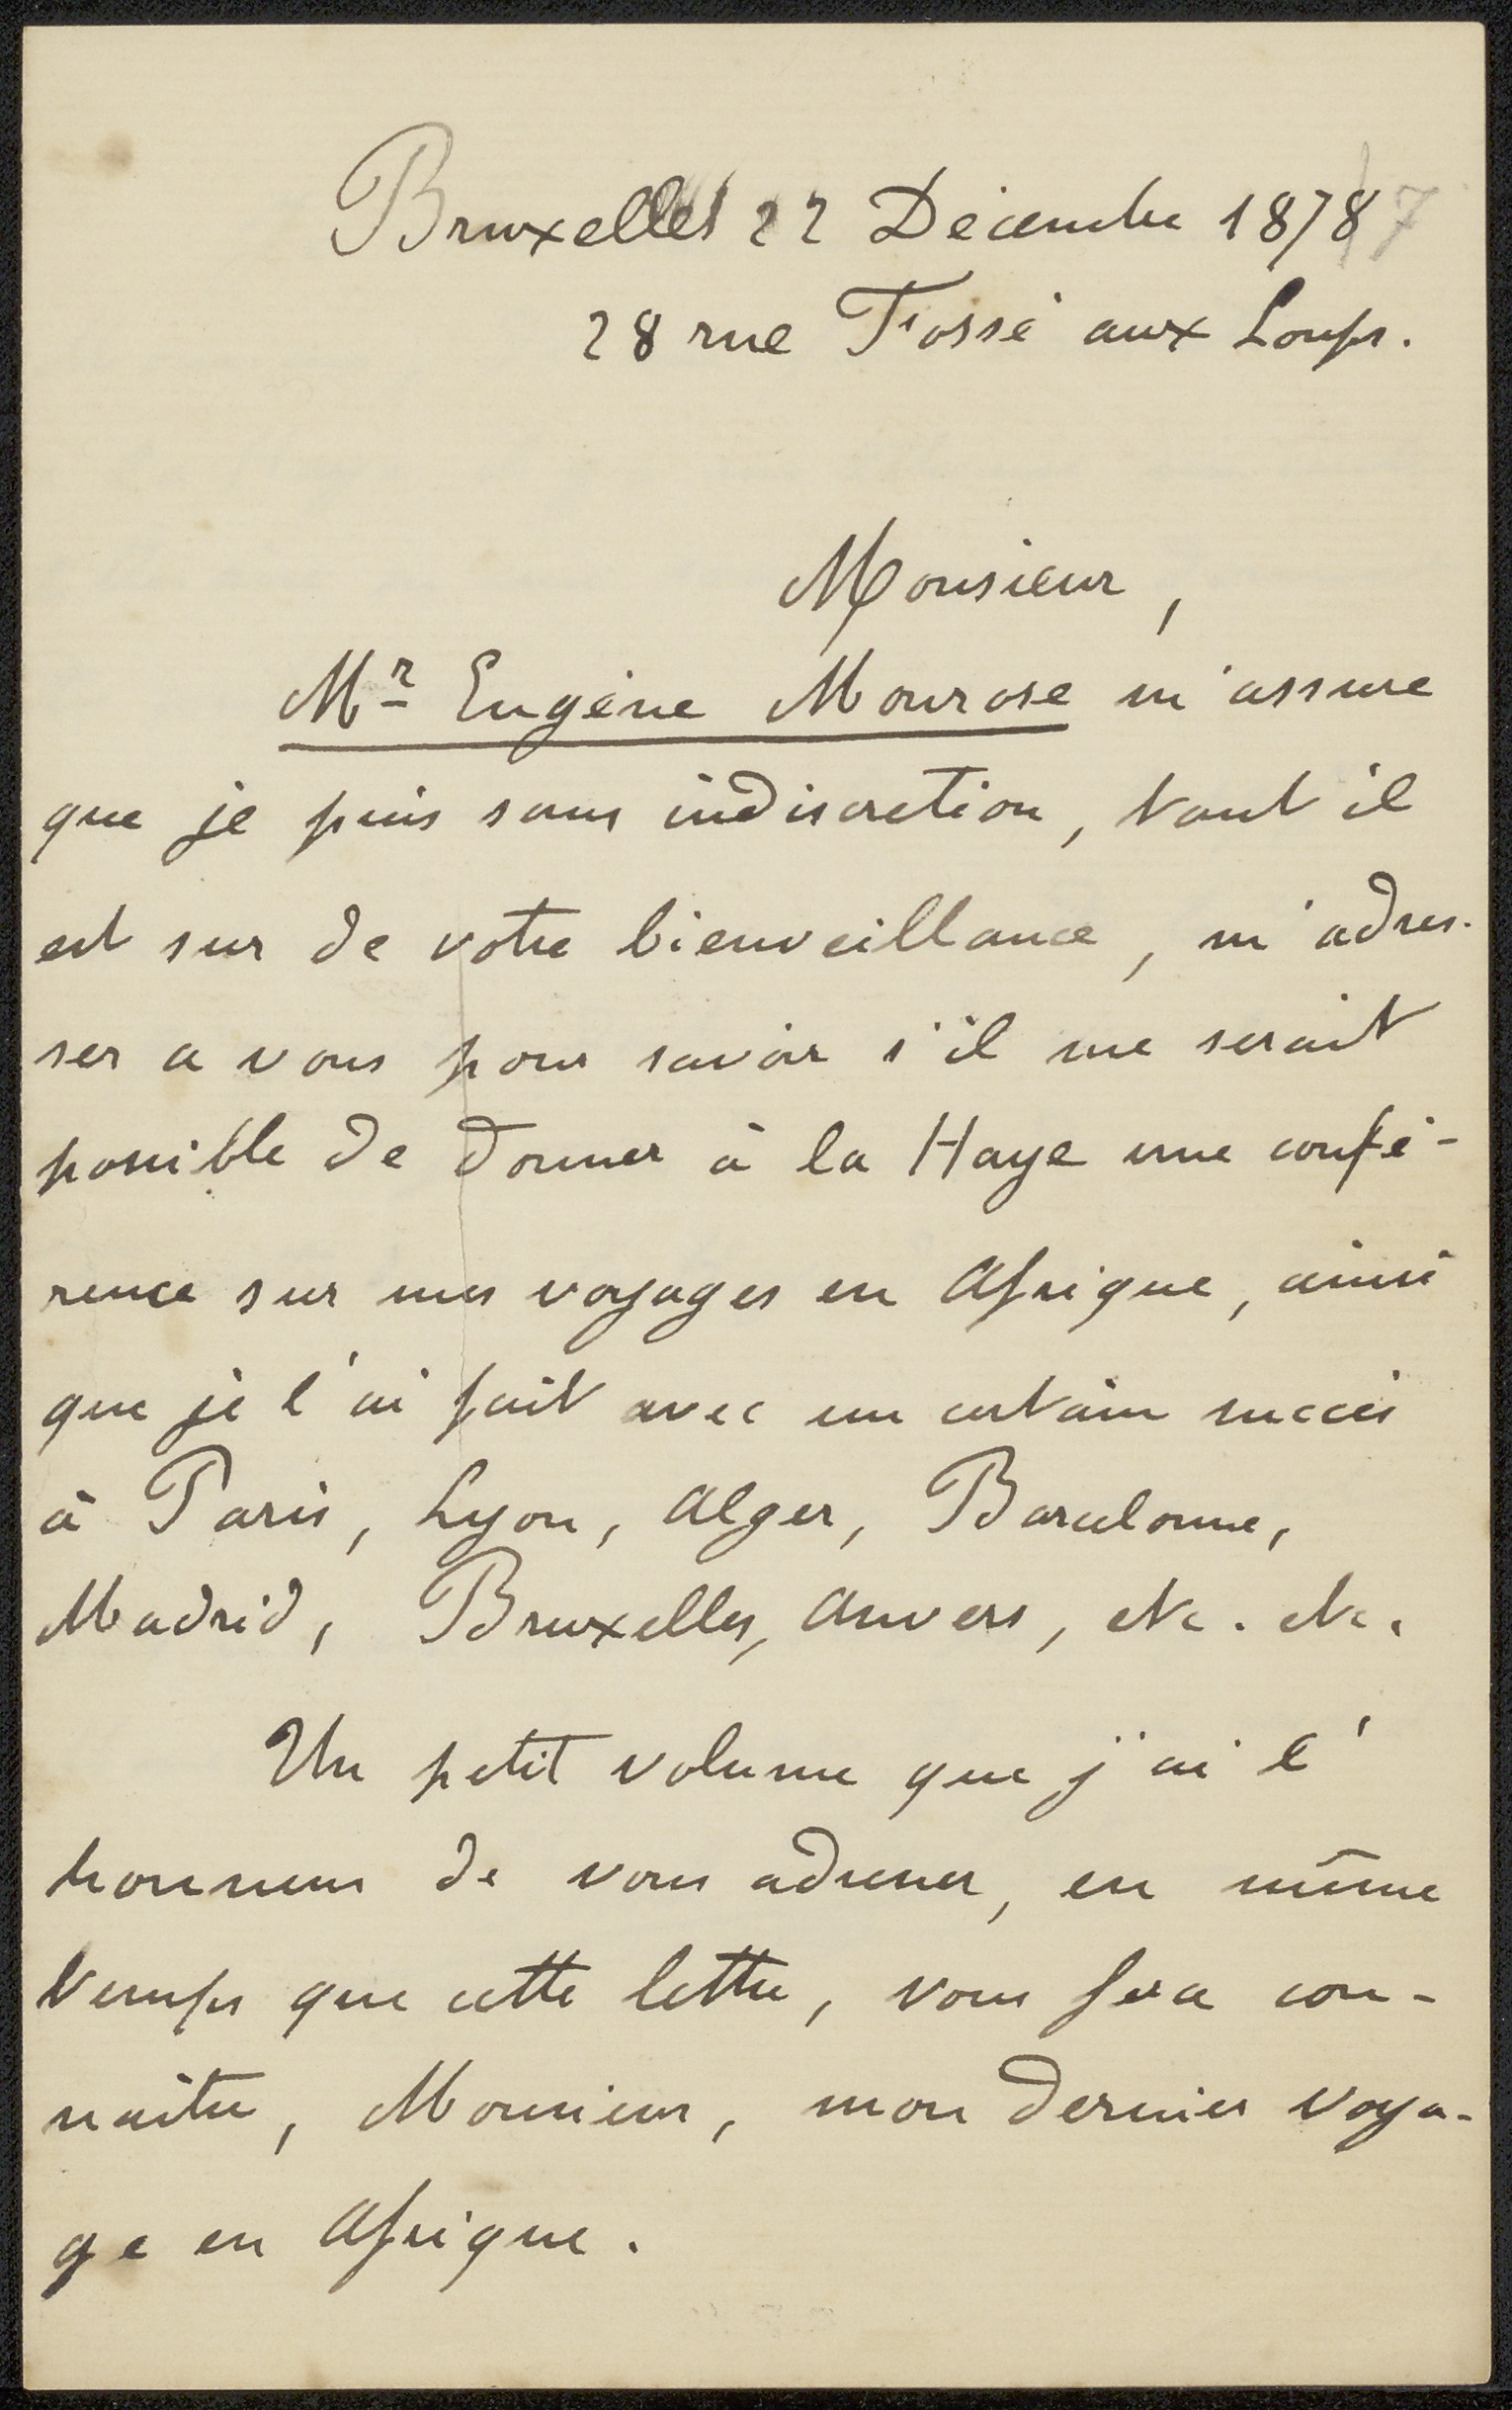 Bruxelles 22 Décembre 1878 7
28 rue Fossé aux Loups.
Monsieur,
Mr Eugène Monrose m'assure
que je puis sans indiscretion, tant il
est sur de votre bienveillance, m'adres-
ser a vous pour savoir s'il me serait
possible de donner à la Haye une confé-
rence sur mes voyages en Afrique, ainsi
que je l'ai fait avec un certain succès
à Paris, Lyon, Alger, Barcelonne,
Madrid, Bruxelles, Anvers, etc. etc.
Un petit volume que j'ai l'
honneur de vous adresser, en même
temps que cette lettre, vous fera con-
naître, Monsieur, mon dernier voya-
ge en Afrique.